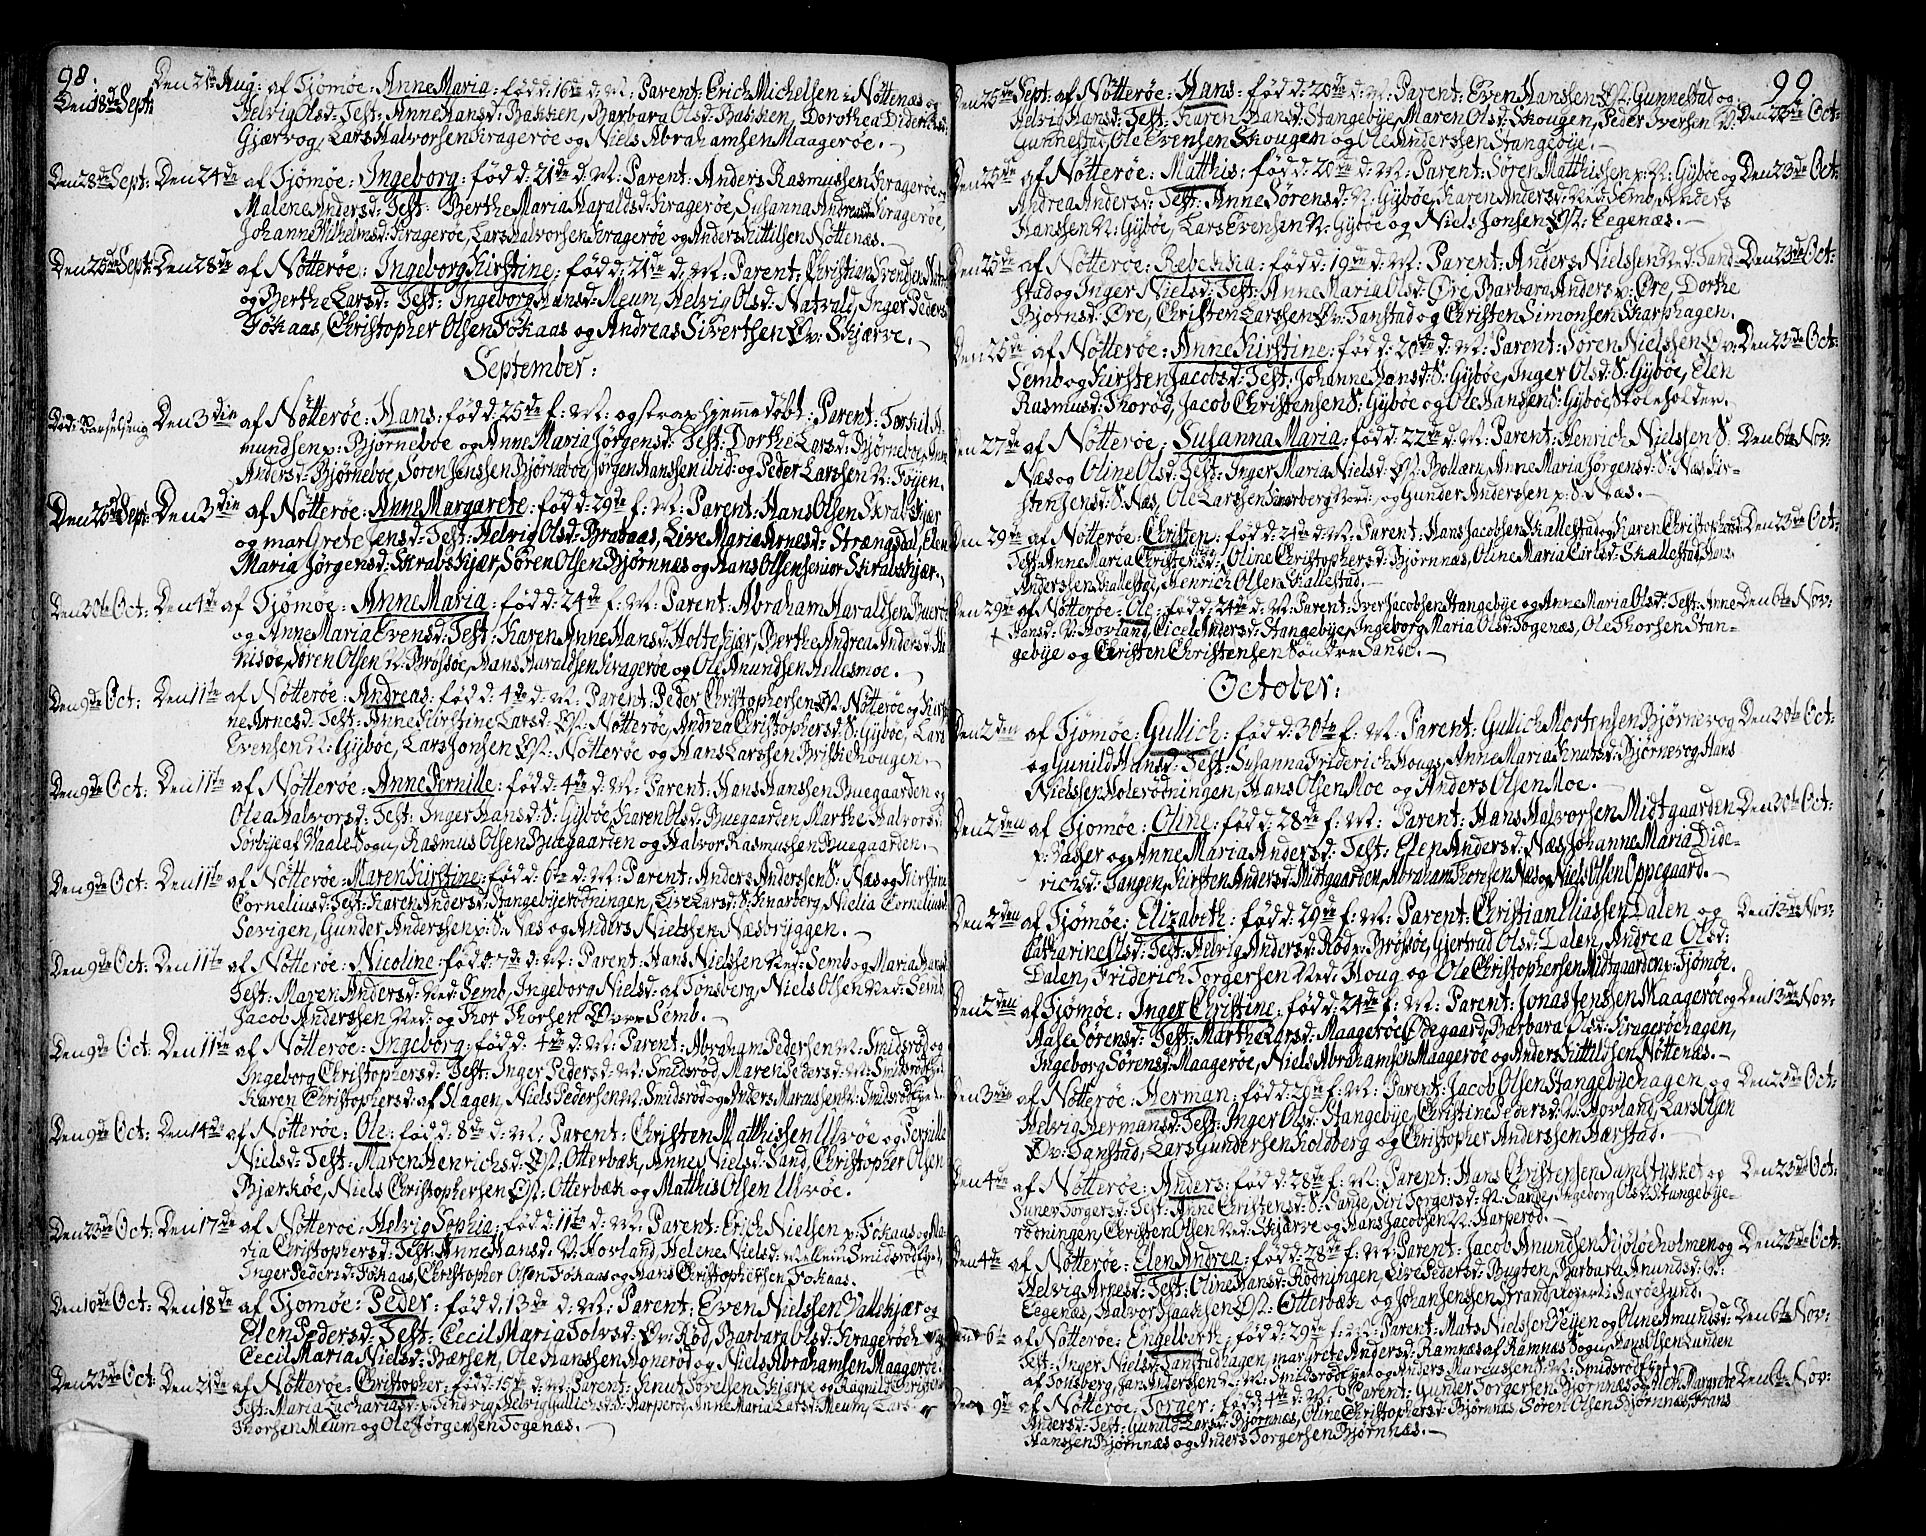 98.
Den 18de Sept: Den 21de Aug: af Tjömöe: Anne Maria: född: 16de d: M: Parent: Erich Michelsen i Nöttenæs og
Helvig Olsd: Test: Anne Hansd: Bakken, Barbara Olsd: Bakken, Dorothea Diderichsd:
Gjærvog, Lars Halvorsen Kragerøe og Niels Abrahamsen Maagerøe.
Den 28de Sept: Den 24de af Tjömöe: Ingeborg: född: 21de d: M: Parent: Anders Rasmussen Kragerøe og
Malene Andersd: Test: Berthe Maria Haraldsd: Kragerøe, Susanna Andreasd: Kragerøe,
Johanne Wilhelmsd: Kragerøe, Lars Halvorsen Kragerøe og Anders Kittilsen Nöttenæs.
Den 25de Sept: Den 28de af Nötteröe: Ingeborg Kirstine: född: 21de d: M: Parent: Christian Svendsen
og Berthe Larsd: Test: Ingeborg Hansd: Meum, Helvig Olsd: Natvald, Inger Pedersd:
Fökaas, Christopher Olsen Fökaas og Andreas Sivertsen Öv: Skjærve.
September:
Död: Barselseng Den 3die af Nötteröe: Hans: född: 25de f: M: og strax hjemmedöbt: Parent: Torkil A-
mundsen p: Bjørneboe og Anne Maria Jørgensd: Test: Dorthe Larsd: Bjørneboe, Anne
Andersd: Bjørneboe, Sören Jenssen Bjørneboe, Jørgen Hanssen ibid: og Peder Larssen N: Föyen.
Den 26de Sept: Den 3die af Nötteröe: Anne Margarete: född: 29de f: M: Parent: Hans Olsen Skrabskjær
og margrete Jensd: Test: Helvig Olsd: Brataas, Live Maria Arnesd: Strængsdal, Elen
Maria Jørgensd: Skrabskjær, Sören Olsen Bjørnnæs og Hans Olsen senior Skrabskjær.
Den 30te Oct: Den 4de af Tjömöe: Anne Maria: född: 24de f: M: Parent: Abraham Haraldsen Bueröe
og Anne Maria Evensd: Test: Karen Anne Hansd: Holtekjær, Berthe Andrea Andersd: Ha-
kisøe, Sören Olsen N: Brössöe, Hans Haraldsen Kragerøe og Ole Anundsen Hellesmoe.
Den 9de Oct: Den 11te af Nötteröe: Andreas: född: 4de d: M: Parent: Peder Christophersen Öst: Nötteröe og Kirsti-
ne Arnesd: Test: Anne Kirstine Larsd: Öst: Nötteröe, Andrea Christophersd: S: Gyböe, Lars
Evensen N: Gyböe, Lars Jonsen Öst: Nötteröe og Hans Larssen Briskeskougen.
Den 9de Oct: Den 11te af Nötteröe: Anne Pernille: född: 4de d: M: Parent: Hans Hanssen Buegaarden og
Olea Halvorsd: Test: Inger Hansd: S: Gyböe, Karen Olsd: Buegaarden Marthe Halvorsd:
Sörbye af Vaale Sogn, Rasmus Olsen Buegaarden og Halvor Rasmussen Buegaarden.
Den 9de Oct: Den 11te af Nötteröe: Maren Kirstine: född: 6te d: M: Parent: Anders Anderssen S: Næs og Kirstine
Corneliusd: Test: Karen Andersd: Stangebyerödningen, Live Larsd: S: Knarberg, Nielia Corneliusd:
Sevigen, Gunder Anderssen p: S: Næs og Anders Nielssen Næsbryggen.
Den 9de Oct: Den 11te af Nötteröe: Nicoline: född: 7de d: M: Parent: Hans Nielssen Ned: Semb og Maria
Test: Maren Andersd: Ned: Semb, Ingeborg Nielsd: af Tönsberg, Niels Olsen Ned: Semb
Jacob Anderssen Ned: og Thor Thorsen Övre Semb.
Den 9de Oct: Den 11te af Nötteröe: Ingeborg: född: 4de d: M: Parent: Abraham Pedersen N: Smidsröd og
Ingeborg Christophersd: Test: Inger Pedersd: N: Smidsröd, Maren Pedersd: N: Smidsrödhjet
Karen Christophersd: af Slagen, Niels Pedersen N: Smidsröd og Anders Marcussen N: Smidsrödhjet.
Den 9de Oct: Den 14de af Nötteröe: Ole: född: 8de d: M: Parent: Christen Matthissen Ulvöe og Pernille
Nielsd: Test: Maren Henrichsd: Öst: Otterbæk, Anne Nielsd: Sand, Christopher Olsen
Bjærköe, Niels Christophersen Öst: Otterbæk og Matthis Olsen Ulvöe.
Den 23de Oct: Den 17de af Nötteröe: Helvig Sophia: född: 11te d: M: Parent: Erich Nielsen p: Fökaas og Ma-
ria Christophersd: Test: Anne Hansd: N: Hovland, Helene Nielsd: Mellem Smidsrödhjet,
Inger Pedersd: Fökaas, Christopher Olsen Fökaas og Hans Christophersen Fokaas.
Den 10de Oct: Den 18de af Tjömöe: Peder: född: 13de d: M: Parent: Even Nielssen Vallekjær og
Elen Pedersd: Test: Cecil Maria Tolvsd: Öv: Röd, Barbara Olsd: Kragerøe
Cecil Maria Nielsd: Bærsen, Ole Hanssen Honeröd og Niels Abrahamsen Maageröe.
Den 23de Oct: Den 21de af Nötteröe: Christopher: född: 15de d: M: Parent: Knut Sörelsen Skjærpe og Ragnild Christensd:
Test: Maria Zacharias: p: Tendvig, Helvig Gullichsd: S: Harperöd, Anne Maria Larsd: Meum, Lars
Thorsen Meum og Ole Jørgensen Togenæs.
99.
Den 25de Sept: af Nötteröe: Hans: född: 20de d: M: Parent: Even Hanssen Öst: Gunnestad og Den 23de Oct:
Helvig Hansd: Test: Karen Hansd: Stangebye, Maren Olsd: Skougen, Peder Iversen N:
Gunnestad, Ole Evensen Skougen og Ole Anderssen Stangebye.
Den 25de af Nötteröe: Matthis: född: 20de d: M: Parent: Sören Matthissen p: N: Gyböe og Den 23de Oct:
Andrea Andersd: Test: Anne Sörensd: N: Gyböe, Karen Andersd: Ned: Semb, Anders
Hanssen N: Gyböe, Lars Evensen N: Gyböe og Niels Jonsen Öst: Eegenæs.
Den 25de af Nötteröe: Rebekka: född: 19de d: M: Parent: Anders Nielssen Ned: Tand- Den 23de Oct:
stad og Inger Nielsd: Test: Anne Maria Olsd: Öre, Barbara Andersd: Öre, Dorthe
Bjørnsd: Öre, Christen Larssen Öv: Tanstad og Christen Simonsen Skarphagen.
Den 25de af Nötteröe: Anne Kirstine: född: 20de d: M: Parent: Sören Nielssen Öv: Den 23de Oct:
Semb og Kirsten Jacobsd: Test: Johanne Hansd: S: Gyböe, Inger Olsd: S: Gyböe, Elen
Rasmusd: Thoröd, Jacob Christensen S: Gyböe og Ole Hansen S: Gyböe, Stoleholder.
Den 27de af Nötteröe: Susanna Maria: född: 22de d: M: Parent: Henrich Nielssen S: Den 6te Nov:
Næs og Oline Olsd: Test: Inger Maria Nielsd: Öst: Bollærn, Anne Maria Jørgensd: S: Næs Kir-
sten Jensd: S: Næs, Ole Larssen Knarberg Nord: og Gunder Anderssen p: S: Næs.
Den 29de af Nötteröe: Christen: född: 24de d: M: Parent: Hans Jacobsen Skallestad og Karen Christophersd: Den 23de Oct:
Test: Anne Maria Christensd: Oline Christophersd: Bjørnnæs, Oline Maria Carlsd: Skallestad, Hans
Anderssen Skallestad, Henrich Olsen Skallestad.
Den 29de af Nötteröe: Ole: född: 24de d: M: Parent: Iver Jacobsen Stangebye og Anne Maria Olsd: Test: Anne Den 6te Nov:
Hansd: N: Hovland, Cicel Andersd: Stangebye, Ingeborg Maria Olsd: Togenæs, Ole Thorsen Stan-
gebye og Christen Christensen Söndre Sande.
October:
Den 2den af Tjömöe: Gullich: född: 30te f: M: Parent: Gullich Mortensen Bjørnevog Den 30te Oct:
og Gunild Hansd: Test: Susanna Friderich Hougs, Anne Maria Knutsd: Bjørnevog, Hans
Nielssen Holerödningen, Hans Olsen Moe og Anders Olsen Moe.
Den 2den af Tjömöe: Oline: född: 28de f: M: Parent: Hans Halvorsen Midtgaarden Den 30te Oct:
p: Vasser og Anne Maria Andersd: Test: Elen Andersd: Næs, Johanne Maria Dide-
richsd: Tangen, Kirsten Andersd: Midtgaarden, Abraham Thoresen Næs og Niels Olsen Oppegaard.
Den 2den af Tjömöe: Elizabeth: född: 29de f: M: Parent: Christian Eliassen Dalen og Den 13de Nov:
Catharine Olsd: Test: Helvig Andersd: Röd p: Brössöe, Gjertrud Olsd: Dalen, Andrea Olsd:
Dalen, Friderich Torgersen Ned: Houg og Ole Christophersen Midtgaarden p: Tjömöe.
Den 2den af Tjömöe: Inger Christine: född: 24de f: M: Parent: Jonas Jenssen Maageröe og Den 13de Nov:
Aase Sörensd: Test: Marthe Larsd: Maageröe Ödegaard, Barbara Olsd: Kragerøehagen,
Ingeborg Sörensd: Maageröe, Niels Abrahamsen Maageröe og Anders Kittilsen Nöttenæs.
Den 3die af Nötteröe: Herman: född: 26de f: M: Parent: Jacob Olsen Stangebyehagen og Den 25de Oct:
Helvig Hermansd: Test: Inger Olsd: Stangebye, Christine Pedersd: N: Hovland, Lars Olsen
Öv: Tanstad, Lars Gundersen Holdberg og Christopher Anderssen Hærstad.
Den 4de af Nötteröe: Anders: född: 28de f: M: Parent: Hans Christensen Sundstykket og Den 23de Oct:
Sunev Torgersd: Test: Anne Christensd: S: Sande, Siri Torgersd: N: Sande, Ingeborg Olsd: Stangebye-
rödningen, Christen Olsen Ned: Skjærve og Hans Jacobsen N: Harperöd.
Den 4de af Nötteröe: Elen Andrea: född: 28de f: M: Parent: Jacob Anundsen Kjölöeholmen og Den 23de Oct:
Helvig Arnesd: Test: Oline Hansd: Rödningen, Live Pedersd: Bugten, Barbara Anundsd:
Eegenæs, Halvor Isaaksen Öst: Otterbæk og Johan Jenssen Strand
Den 6te af Nötteröe: Engelbreth: född: 29de f: M: Parent: Mats Nielssen Veyen og Oline Amundsd: Den 6te Nov:
Test: Inger Nielsd: Tanstadhagen, margrete Andersd: Ramnæs af Ramnæs Sogn, Hans Olsen Lunden
af Tönsberg, Jan Anderssen N: Smidsrödhjet og Anders Marcussen N: Smidsrödhjet.
Den 9de af Nötteröe: Torger: född: 4de d: M: Parent: Gunder Torgersen Bjørnnæs og Elen Margrete Den 6te Nov:
Andersd: Test: Gunild Larsd: Bjørnnæs, Oline Christophersd: Bjørnnæs Sören Olsen Bjørnnæs, Frans
Hanssen Bjørnnæs og Anders Torgersen Bjørnnæs.